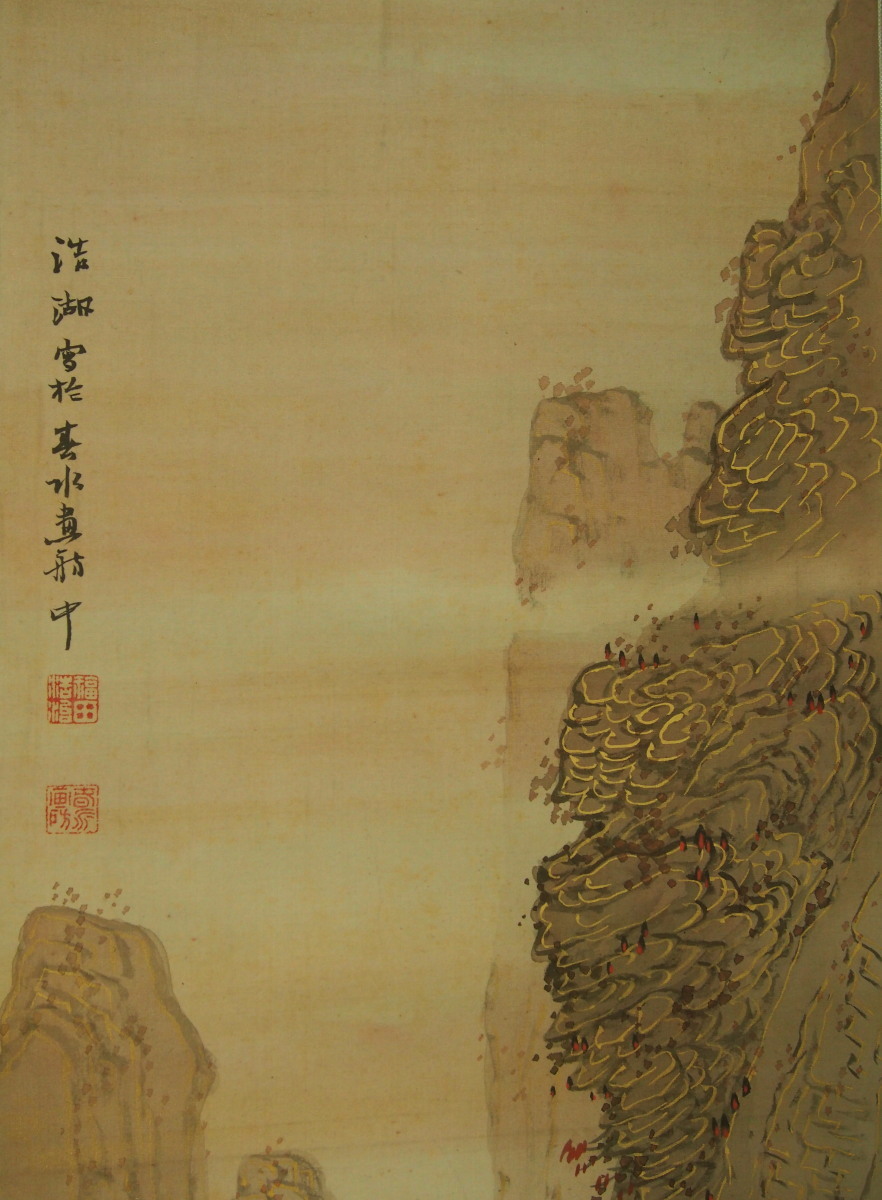 浩湖寫於春水畫舫中
福田浩湖